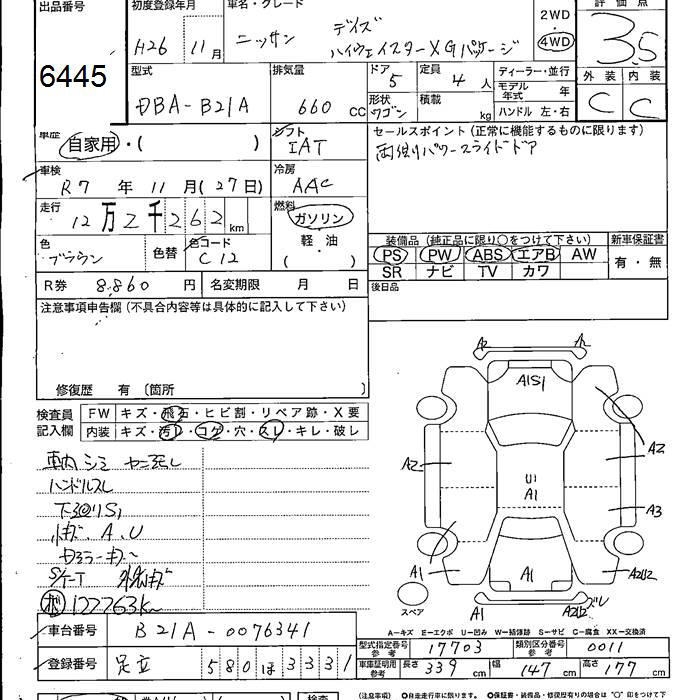 出品番号 初度登録年月 車名・グレード 評価点
H26 11月 ニッサン デイズ
ハイウェイスターXGパッケージ
2WD
4WD
3.5
6445
型式 排気量 ドア 定員 ディーラー・並行 外装 内装
DBA-B21A 660 cc 5 4人 モデル年式 年 C C
形状 ワゴン 積載 kg ハンドル 左・右
車歴 自家用・( ) シフト IAT
セールスポイント(正常に機能するものに限ります)
両側パワースライドドア
車検 R7年11月(27日) 冷房 AAC
走行 12万2千262km 燃料 ガソリン
軽・油
( )
色 ブラウン 色替 色コード C12
装備品(純正品に限り○をつけて下さい) 新車保証書
PS PW ABS エアB AW 有・無
SR ナビ TV カワ
R券 8,860円 名変期限 月 日
後日品
注意事項申告欄(不具合内容等は具体的に記入して下さい)
修復歴 有 〔箇所 〕
検査員 記入欄
FW キズ・飛石・ヒビ割・リペア跡・X要
内装 キズ・汚レ・コゲ・穴・スレ・キレ・破レ
車内シミ ヤニ汚レ
ハンドルスレ
下回りS1
小キズ、A、U
S/T
122763k
A2
A1S1
A2
A2
U1
A1
A3
A1
A1
A2U2
スペア
A1
A2U2
ズレ
A-キズ E-エクボ U-凹ミ W-補修跡 S-サビ C-腐食 XX-交換済
車台番号 B21A-0076341
登録番号 足立 580 ほ 3331
型式指定番号 参考 17703 類別区分番号 参考 0011
車庫証明用 参考 長さ 339cm 幅 147cm 高さ 177cm
(注意事項)
検査